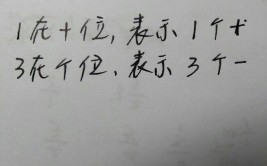 1在十位,表示1个十
3在个位、表示3个一